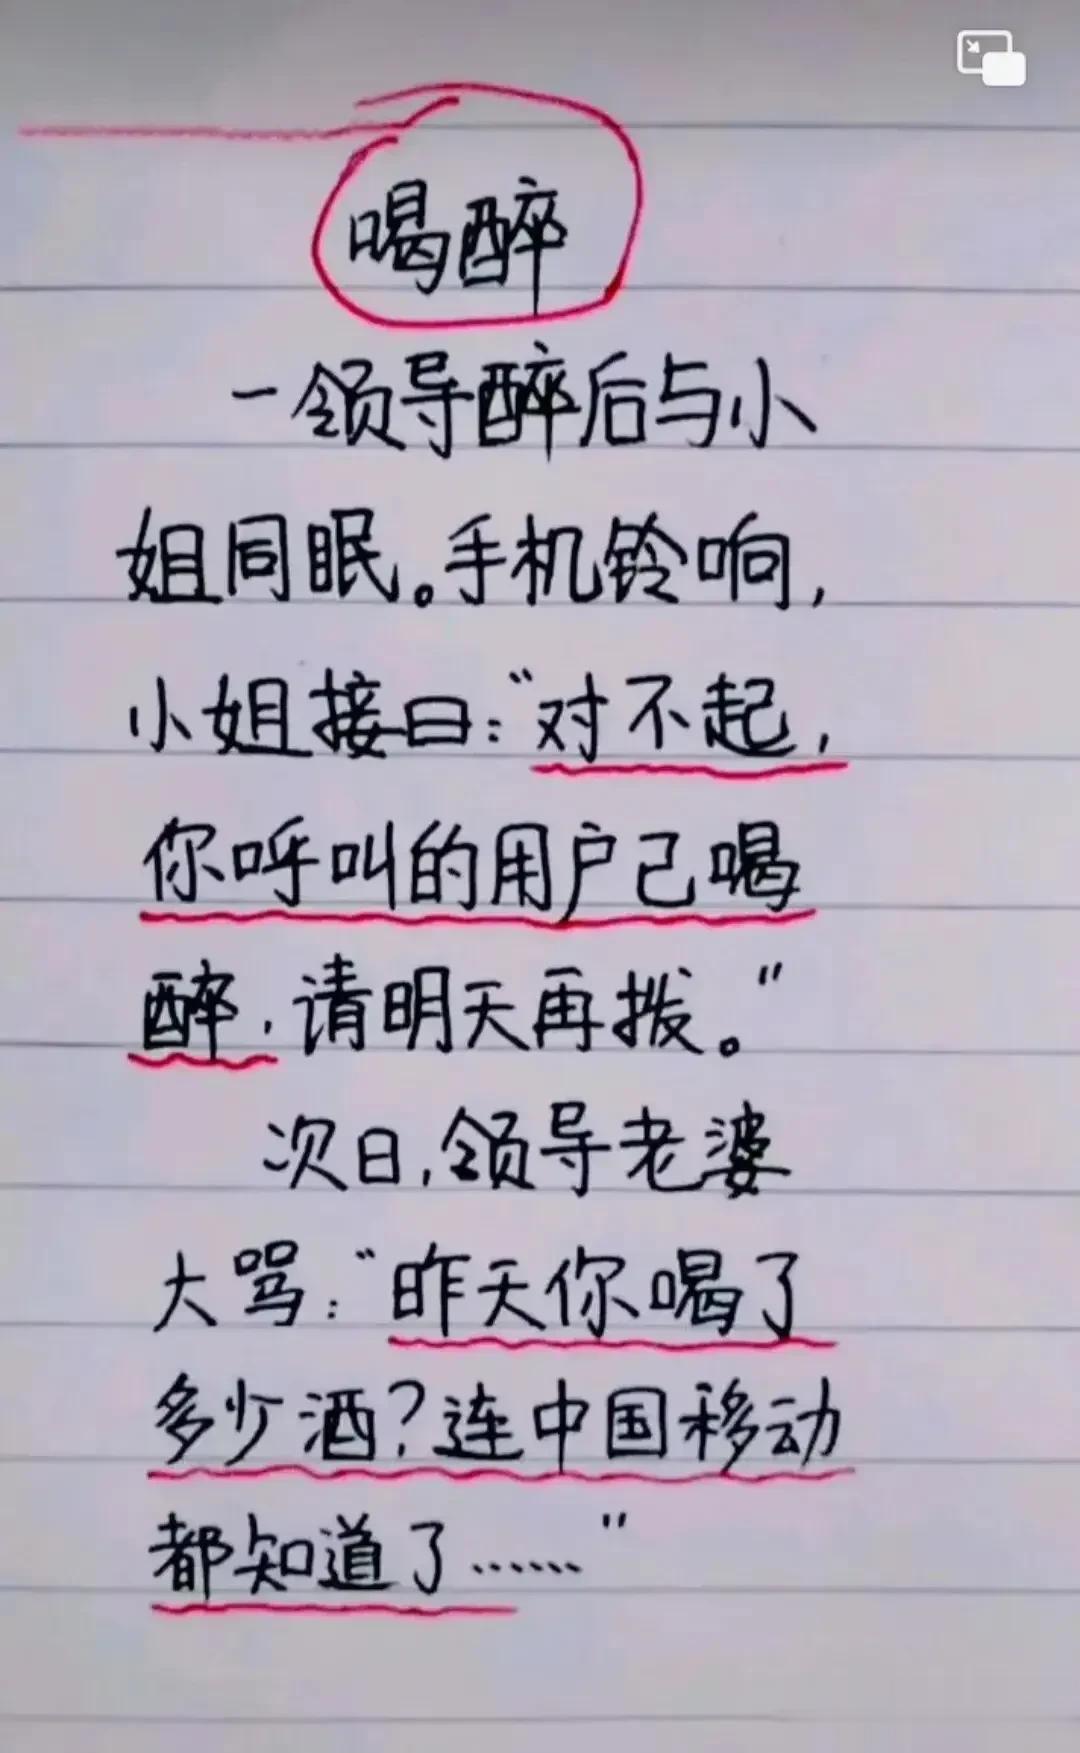 喝醉
一领导醉后与小
姐同眠。手机铃响，
小姐接曰：“对不起，
你呼叫的用户己喝
醉，请明天再拨。”
次日，领导老婆
大骂：“昨天你喝了
多少酒？连中国移动
都知道了……”